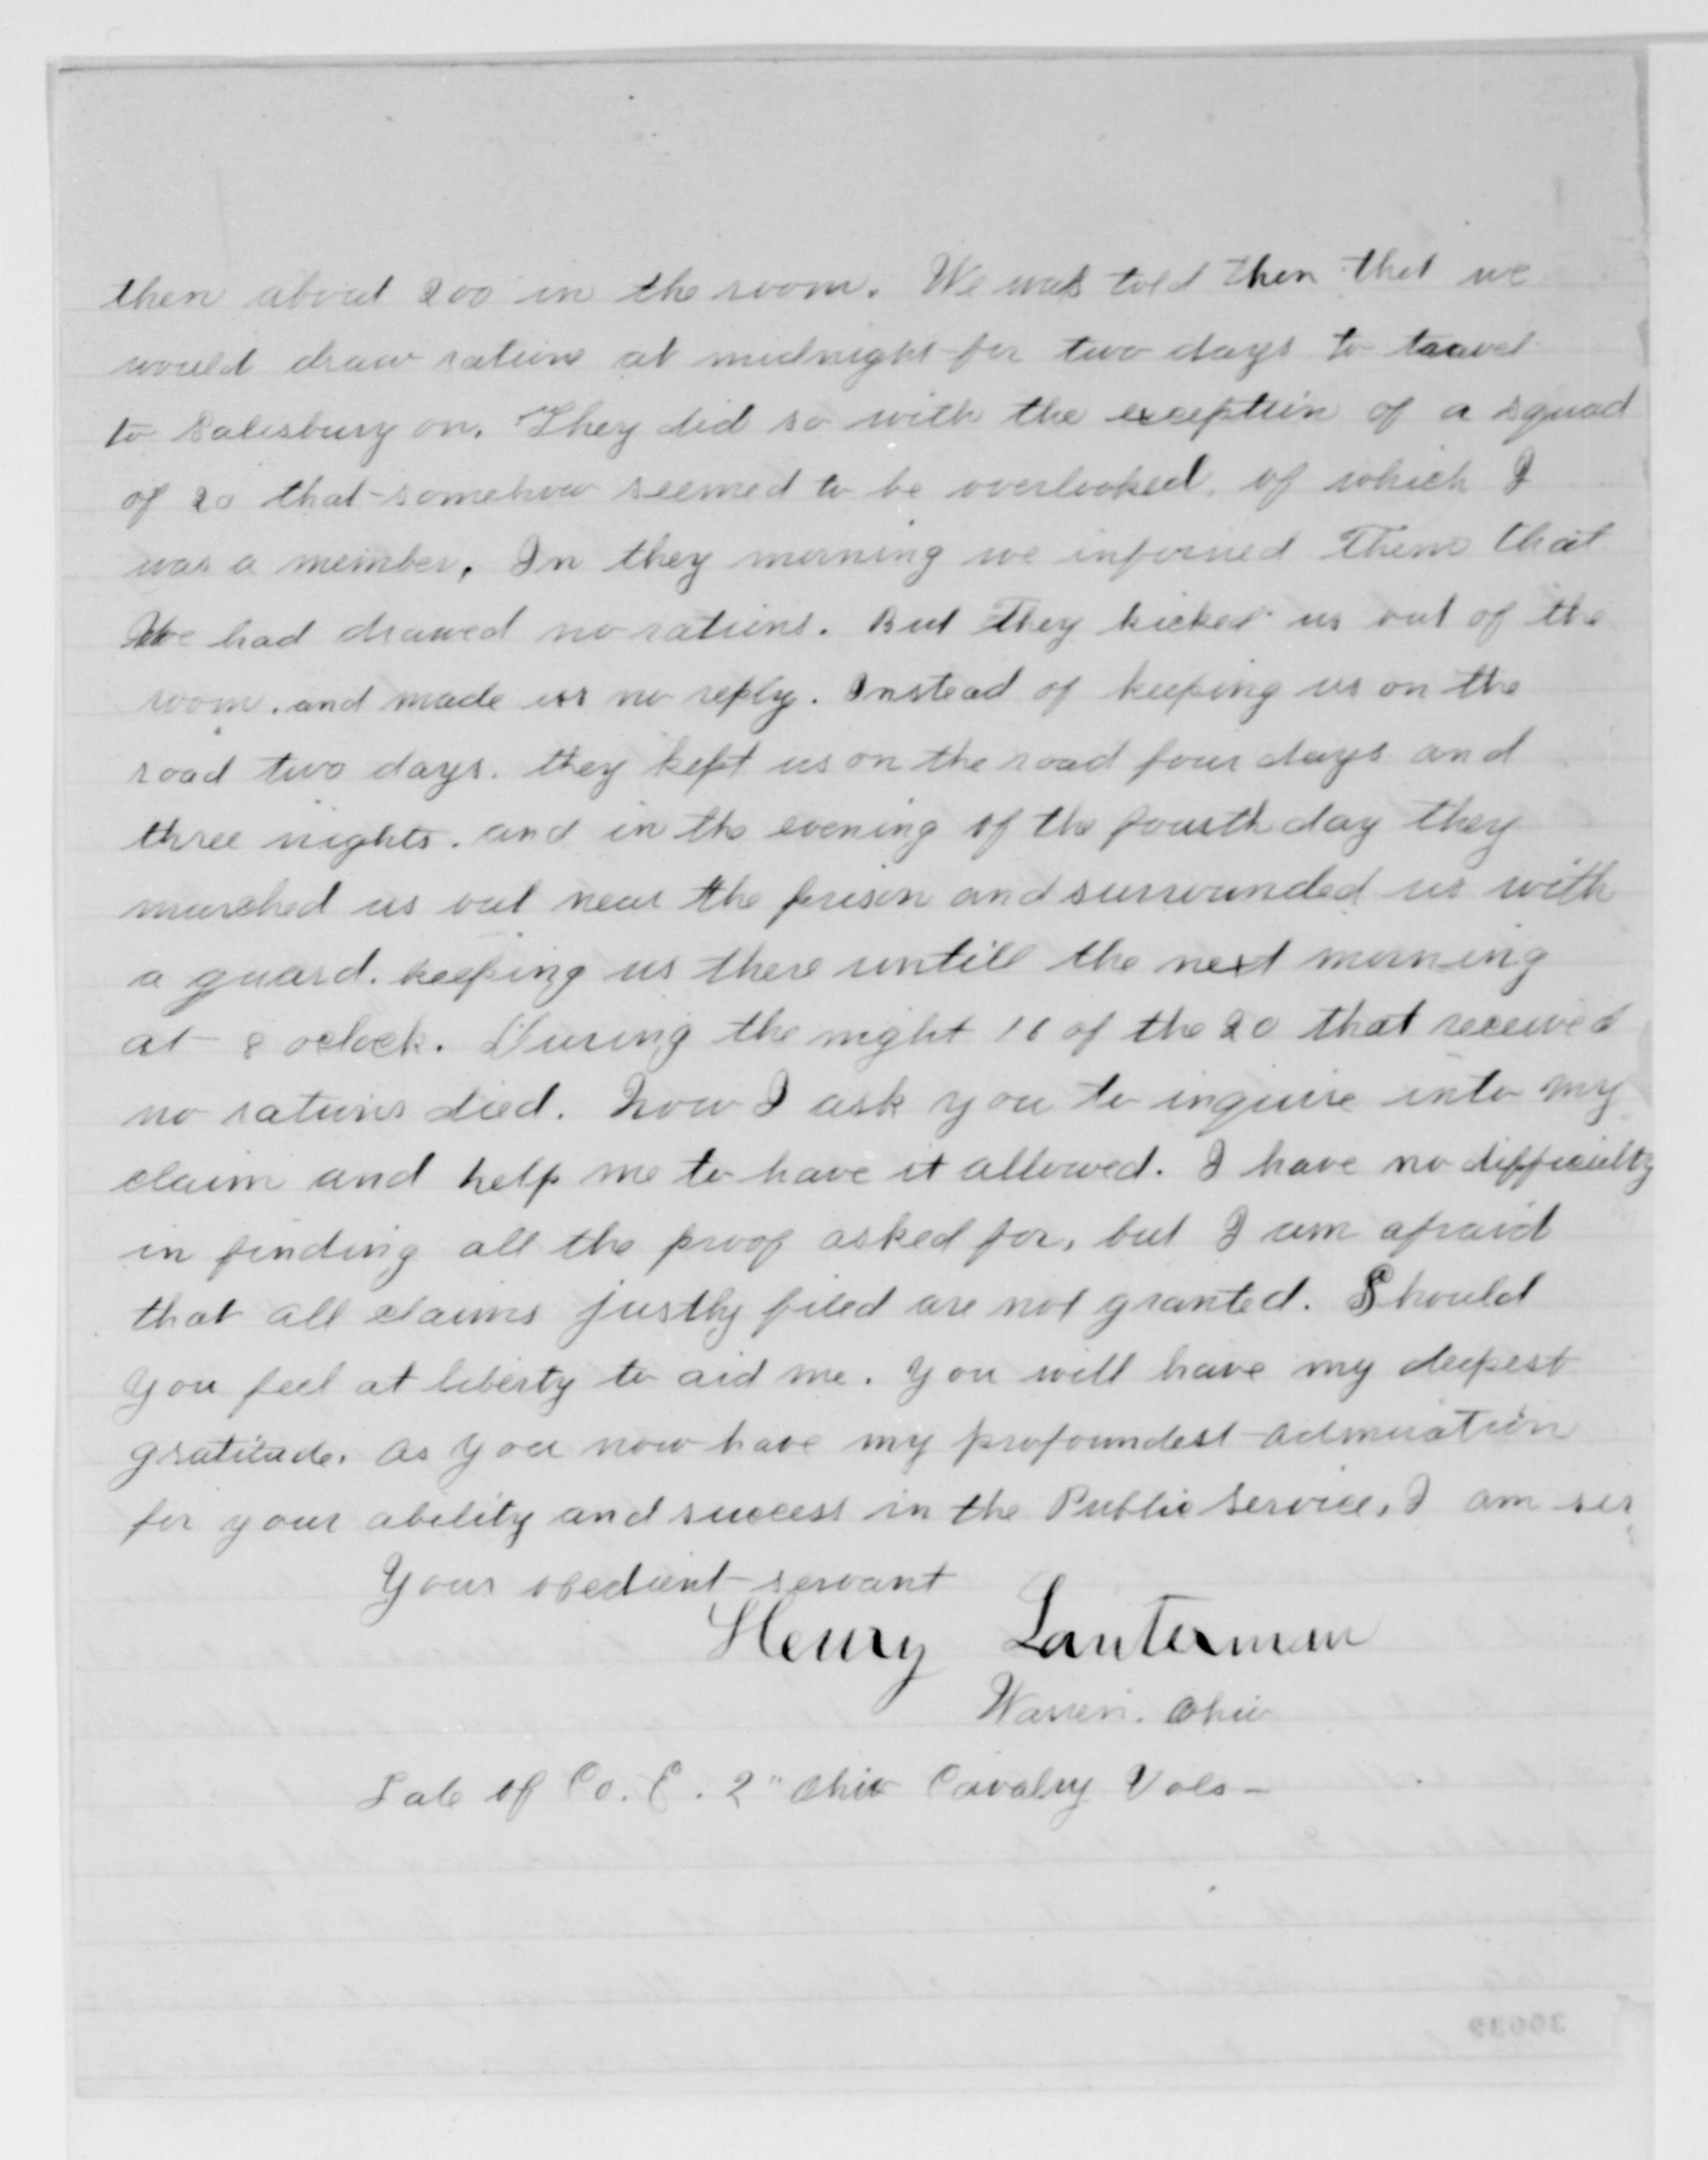 then about 200 in the room. We was told then that we
would draw rations at midnight for two days to travel
to Salisbury on. They did so with the exception of a squad
of 20 that somehow seemed to be overlooked, of which I
was a member. In they morning we informed them that
We had drawed no rations. But they kicked us out of the
room. and made us no reply. Instead of keeping us on the
road two days. they kept us on the road four days and
three nights. and in the evening of the fourth day they
marched us out near the prison and surrounded us with
a guard. keeping us there untill the next morning
at 8 oclock. During the night 11 of the 20 that received
no rations died. Now I ask you to inquire into my
claim and help me to have it allowed. I have no difficulty
in finding all the proof asked for, but I am afraid
that all claims justly filed are not granted. Should
you feel at liberty to aid me. you will have my deepest
gratitude. as you now have my profoundest admiration
for your ability and success in the Public service. I am sir
Your obedient servant
Henry Lanterman
Warren. Ohio
Late of Co. E. 2" Ohio Cavalry Vols -
30039